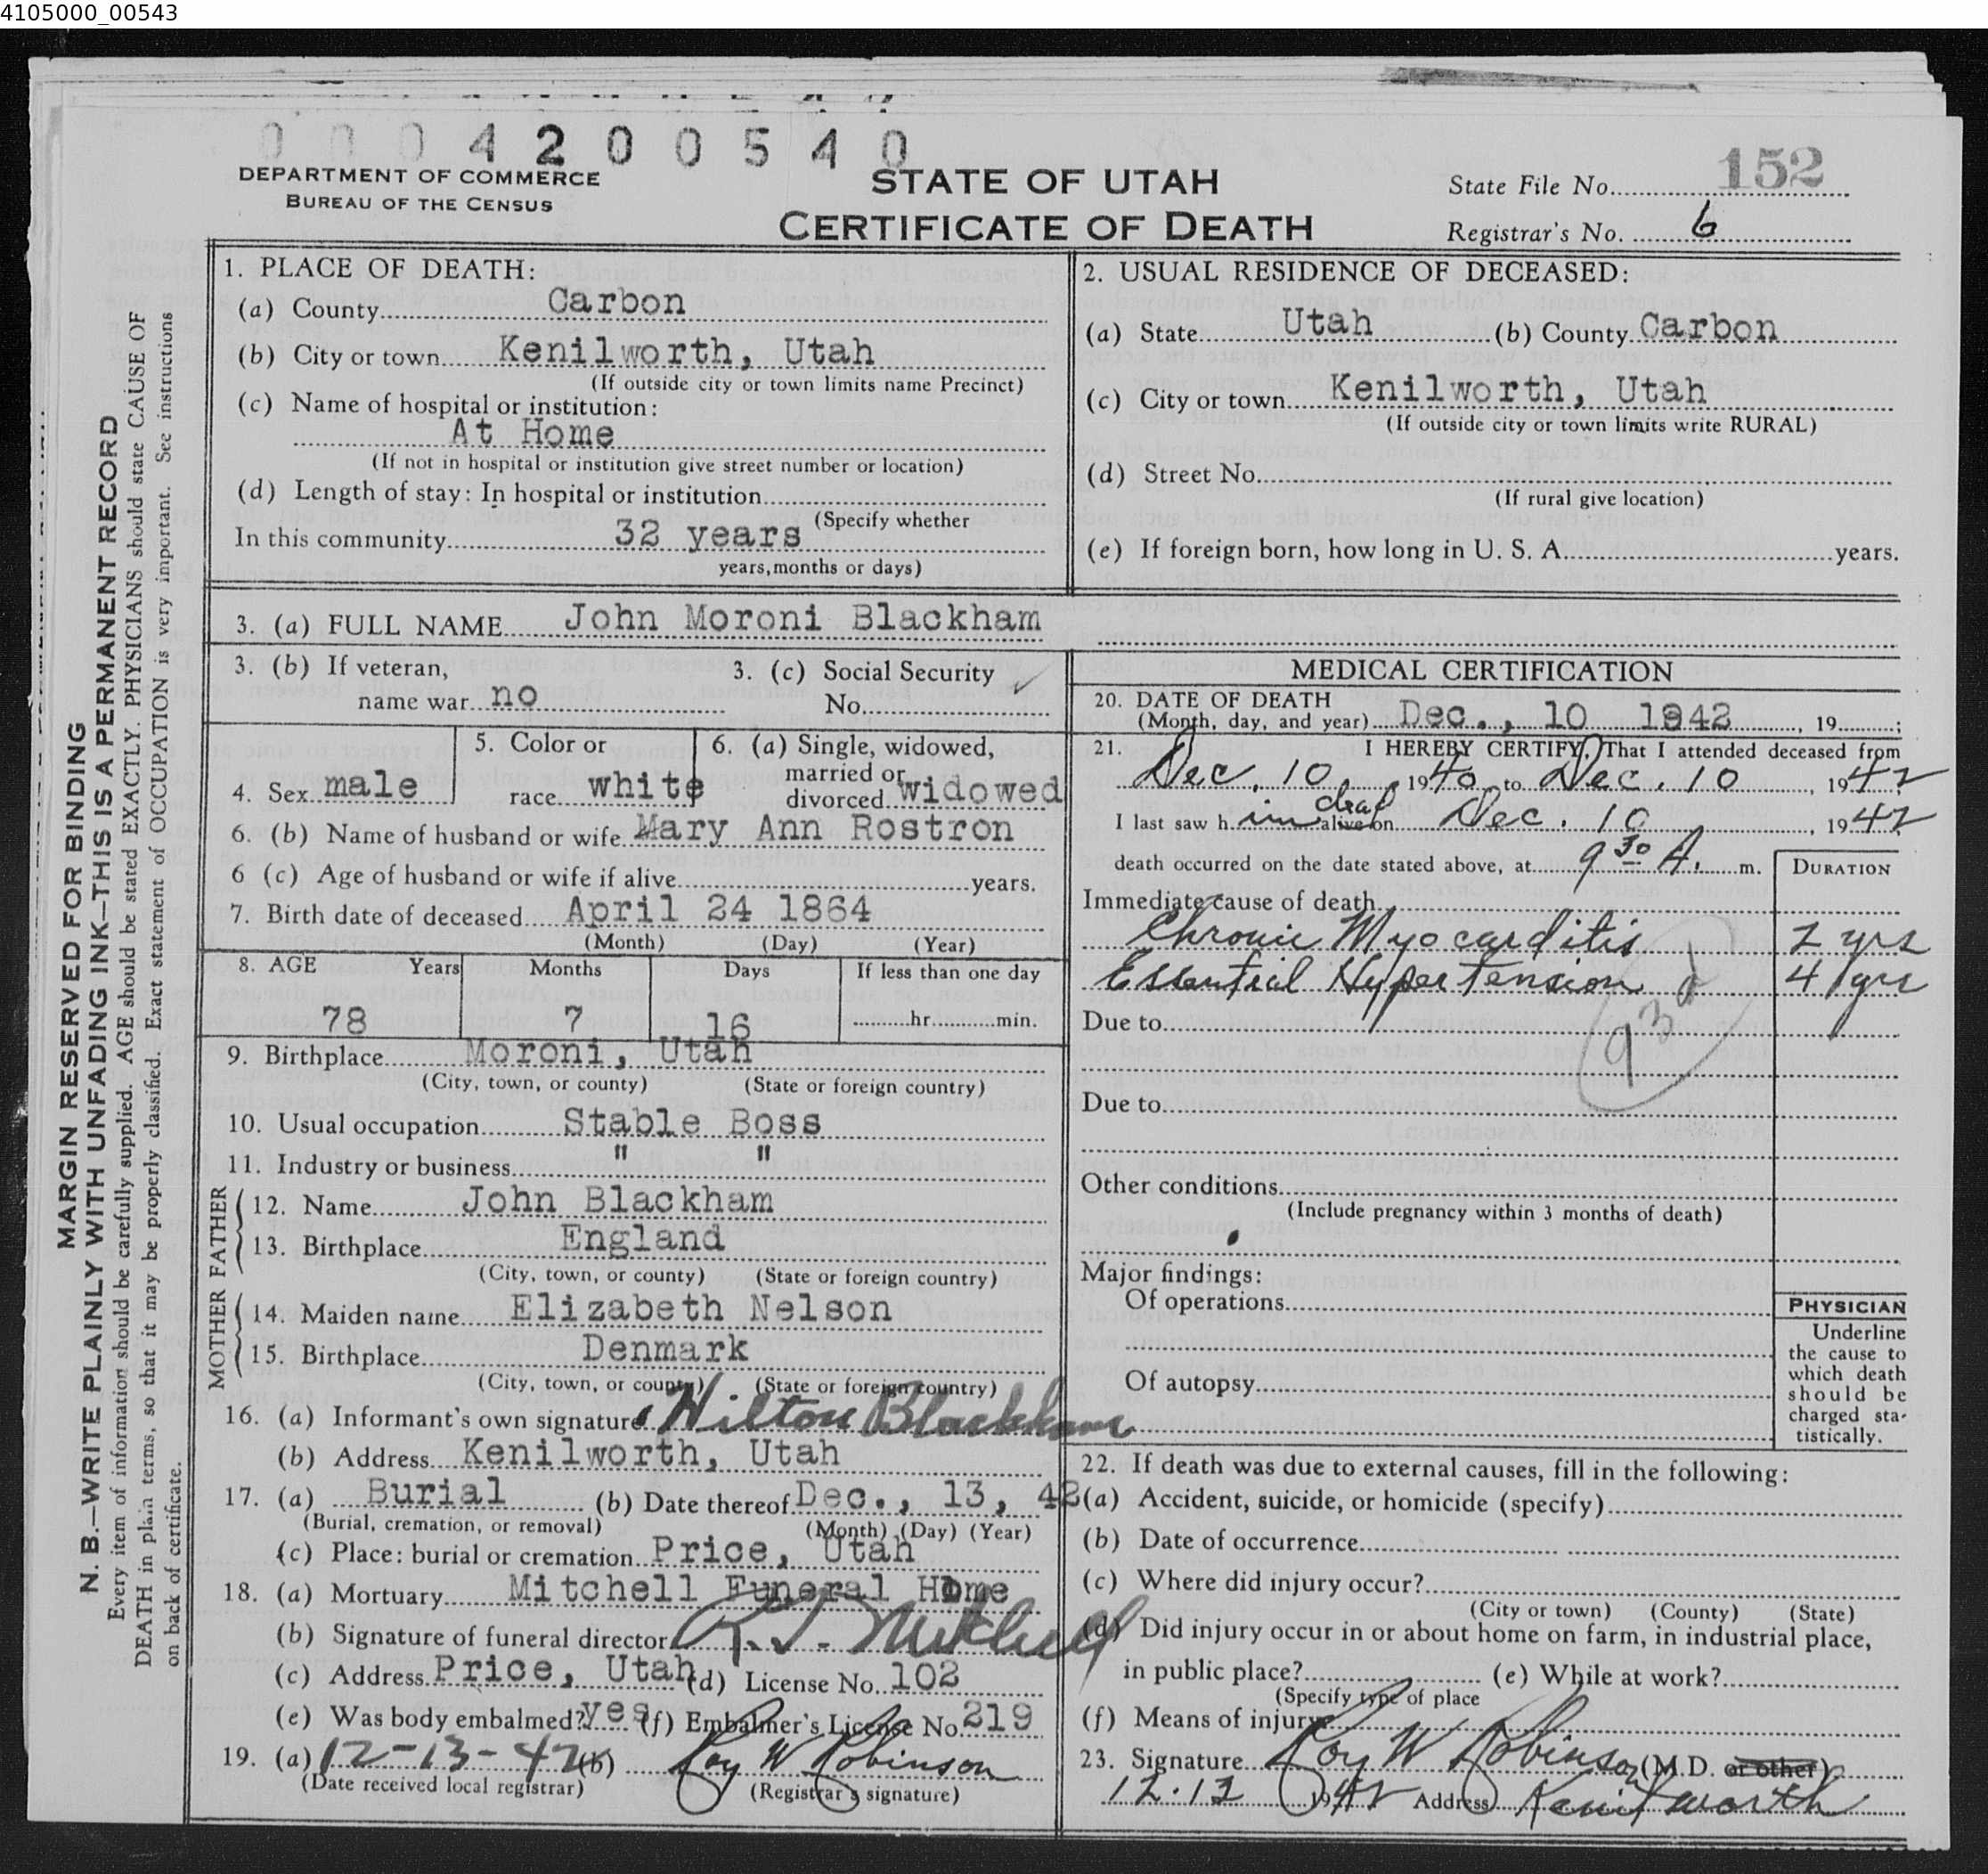 4105000_00543
0004200540
DEPARTMENT OF COMMERCE
BUREAU OF THE CENSUS
STATE OF UTAH
CERTIFICATE OF DEATH
State File No. 152
Registrar's No. 6
MARGIN RESERVED FOR BINDING
N. B.—WRITE PLAINLY WITH UNFADING INK—THIS IS A PERMANENT RECORD
Every item of information should be carefully supplied. AGE should be stated EXACTLY. PHYSICIANS should state CAUSE OF
DEATH in plain terms, so that it may be properly classified. Exact statement of OCCUPATION is very important. See instructions
on back of certificate.
1. PLACE OF DEATH:
(a) County Carbon
(b) City or town Kenilworth, Utah
(If outside city or town limits name Precinct)
(c) Name of hospital or institution:
At Home
(If not in hospital or institution give street number or location)
(d) Length of stay: In hospital or institution
(Specify whether
In this community 32 years
years, months or days)
2. USUAL RESIDENCE OF DECEASED:
(a) State Utah (b) County Carbon
(c) City or town Kenilworth, Utah
(If outside city or town limits write RURAL)
(d) Street No.
(If rural give location)
(e) If foreign born, how long in U. S. A. years.
3. (a) FULL NAME John Moroni Blackham
3. (b) If veteran,
name war no
3. (c) Social Security
No.
4. Sex male
5. Color or
race white
6. (a) Single, widowed,
married or
divorced widowed
6. (b) Name of husband or wife Mary Ann Rostron
6 (c) Age of husband or wife if alive years.
7. Birth date of deceased April 24 1864
(Month) (Day) (Year)
8. AGE Years Months Days If less than one day
78 7 16 hr. min.
9. Birthplace Moroni, Utah
(City, town, or county) (State or foreign country)
10. Usual occupation Stable Boss
11. Industry or business " "
FATHER
12. Name John Blackham
13. Birthplace England
(City, town, or county) (State or foreign country)
MOTHER
14. Maiden name Elizabeth Nelson
15. Birthplace Denmark
(City, town, or county) (State or foreign country)
16. (a) Informant's own signature Hilton Blackham
(b) Address Kenilworth, Utah
17. (a) Burial (b) Date thereof Dec., 13, 42
(Burial, cremation, or removal) (Month) (Day) (Year)
(c) Place: burial or cremation Price, Utah
18. (a) Mortuary Mitchell Funeral Home
(b) Signature of funeral director R. J. Mitchell
(c) Address Price, Utah (d) License No. 102
(e) Was body embalmed? yes (f) Embalmer's License No. 219
19. (a) 12-13-42 (b) Roy W Robinson
(Date received local registrar) (Registrar's signature)
MEDICAL CERTIFICATION
20. DATE OF DEATH
(Month, day, and year) Dec., 10 1942, 19 ;
21. I HEREBY CERTIFY, That I attended deceased from
Dec. 10, 1940 to Dec. 10, 1942
dead
I last saw him alive on Dec. 10, 1942
death occurred on the date stated above, at 9 30 A. m.
DURATION
Immediate cause of death
Chronic Myocarditis 2 yrs
Essential Hypertension 4 yrs
93d
Due to
Due to
Other conditions
(Include pregnancy within 3 months of death)
Major findings:
Of operations
Of autopsy
PHYSICIAN
Underline
the cause to
which death
should be
charged sta-
tistically.
22. If death was due to external causes, fill in the following:
(a) Accident, suicide, or homicide (specify)
(b) Date of occurrence
(c) Where did injury occur?
(City or town) (County) (State)
(d) Did injury occur in or about home on farm, in industrial place,
in public place? (e) While at work?
(Specify type of place
(f) Means of injury
23. Signature Roy W Robinson (M.D. or other)
12.13 1942 Address Kenilworth